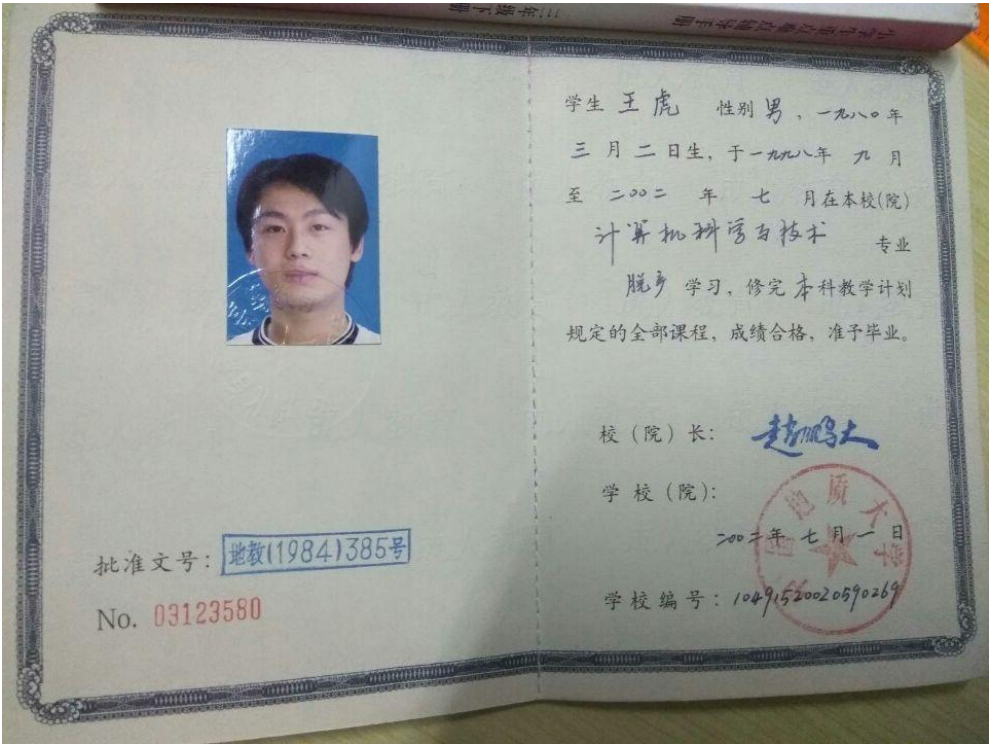 三年级下册
批准文号：地教(1984)385号
No. 03123580
学生 王虎 性别 男，一九八〇年
三月二日生，于一九九八年 九月
至 二〇〇二 年 七 月在本校(院)
计算机科学与技术 专业
脱产 学习，修完 本科教学计划
规定的全部课程，成绩合格，准予毕业。
校（院）长： 赵鹏大
学校（院）：
地质大学
二〇〇二年 七月 一日
学校编号：10491520020590269